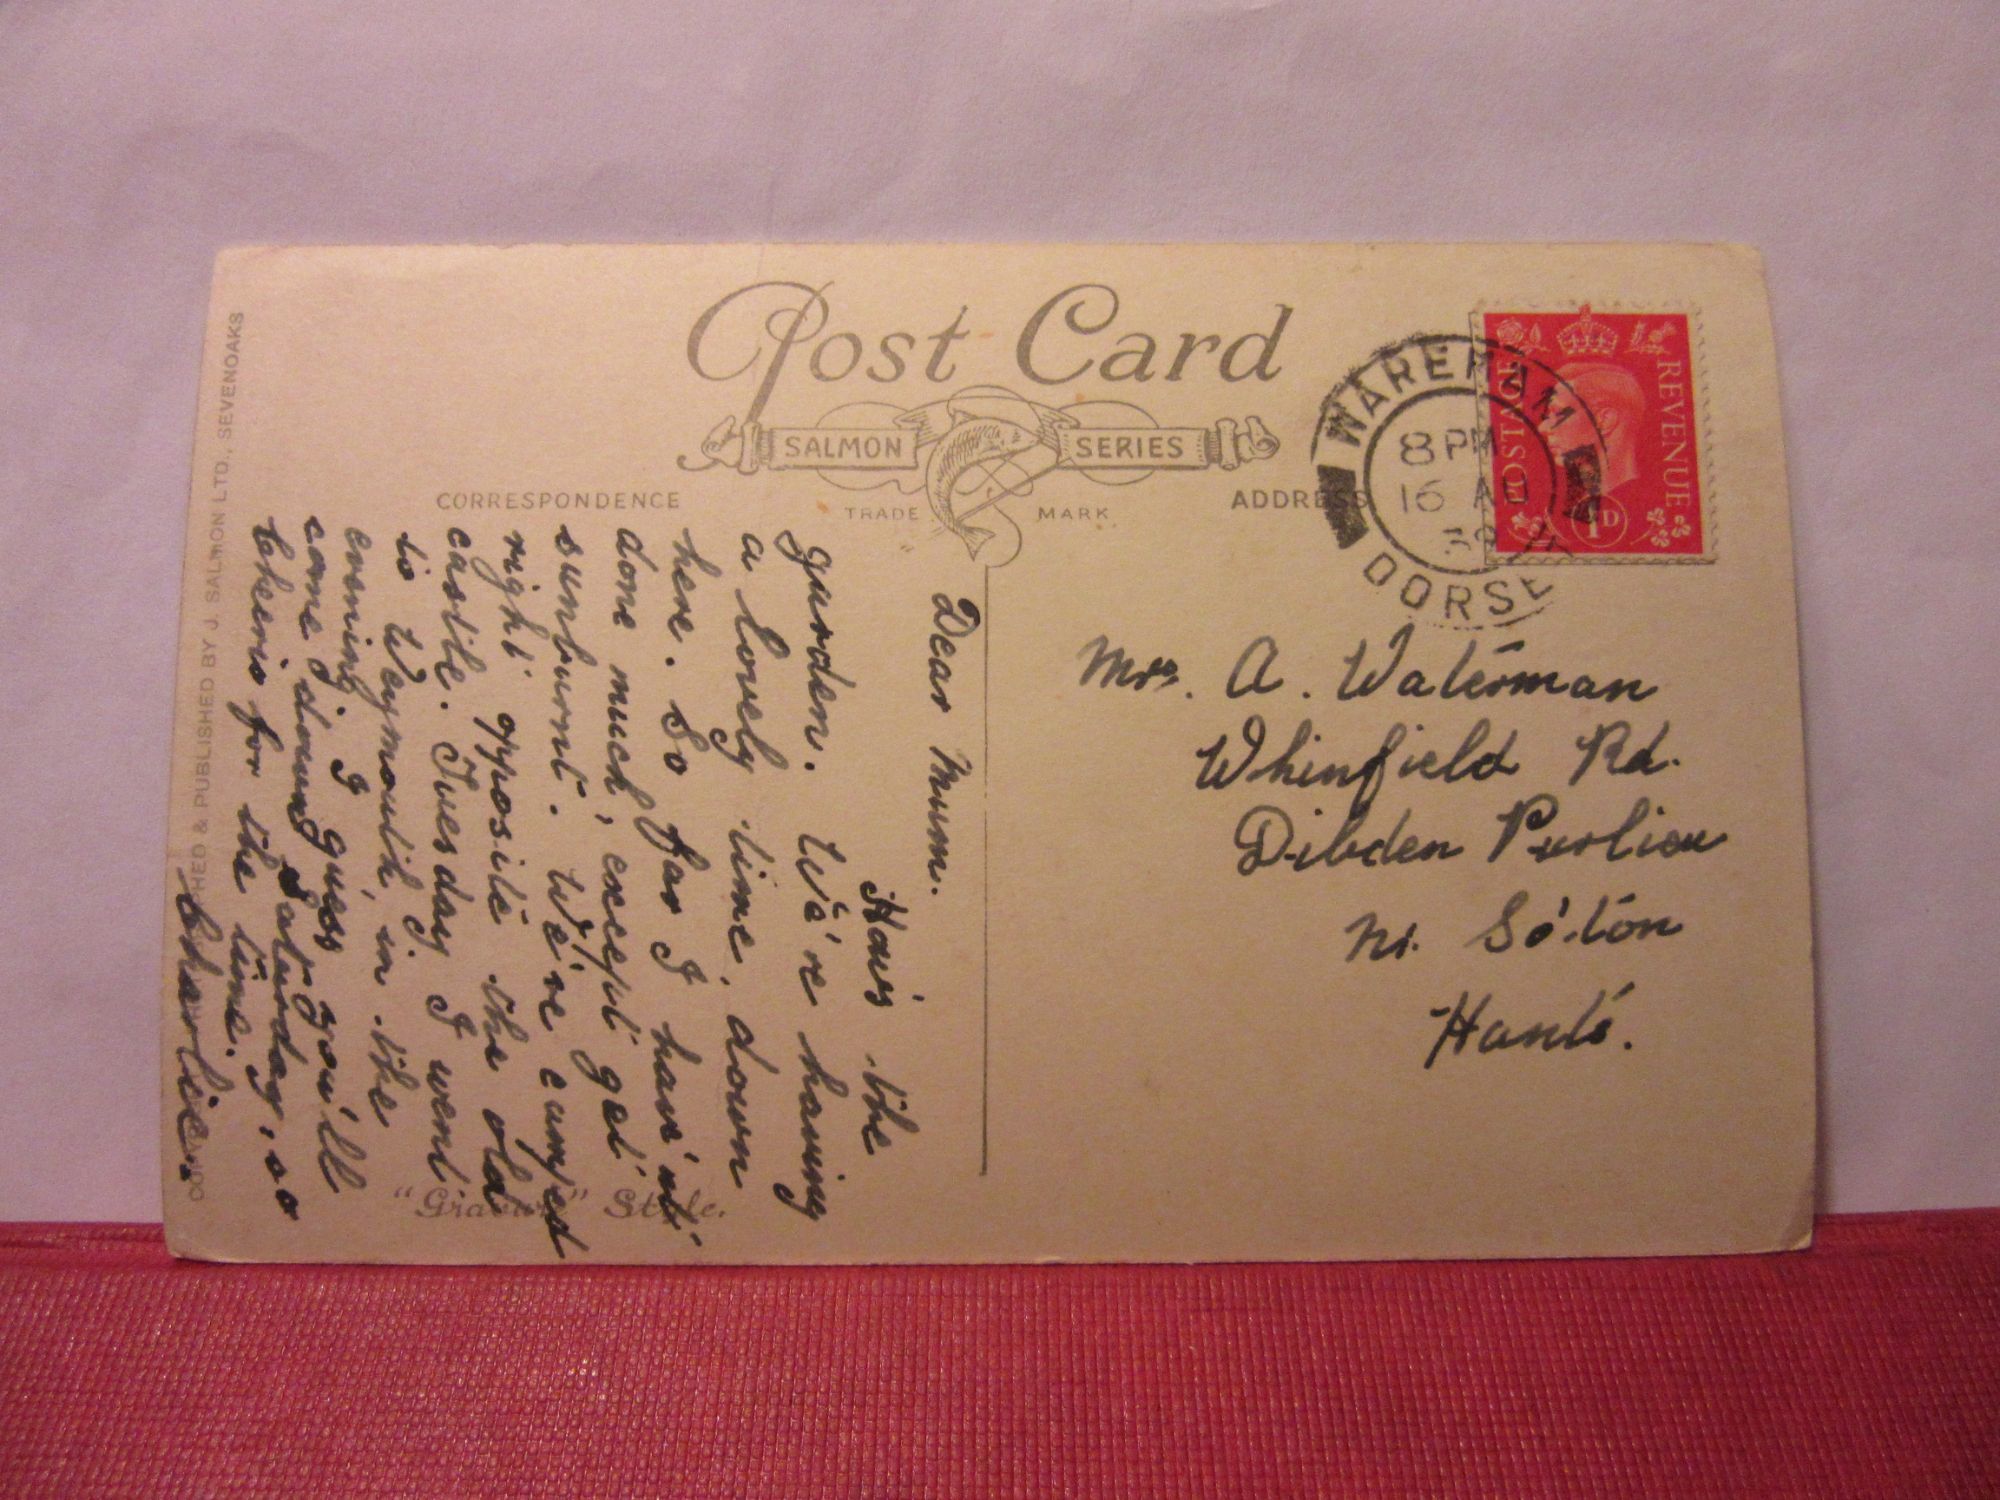 Post Card
SALMON SERIES
TRADE MARK
CORRESPONDENCE
ADDRESS
WAREHAM
8 PM
16
DORSE
POSTAGE
REVENUE
1D
Mrs. A. Waterman
Whinfield Rd.
Dibden Purlieu
nr. So'ton
Hants.
Dear Mum.
How's the
garden. We're having
a lovely time, down
here. So far I haven't
done much, except get
sunburnt. We've camped
right opposite the old
castle. Tuesday I went
to Weymouth, in the
evening. I guess you'll
come down Saturday, so
cheerio for the time.
Charlie.
"Gravure" Style.
HED & PUBLISHED BY J. SALMON LTD., SEVENOAKS